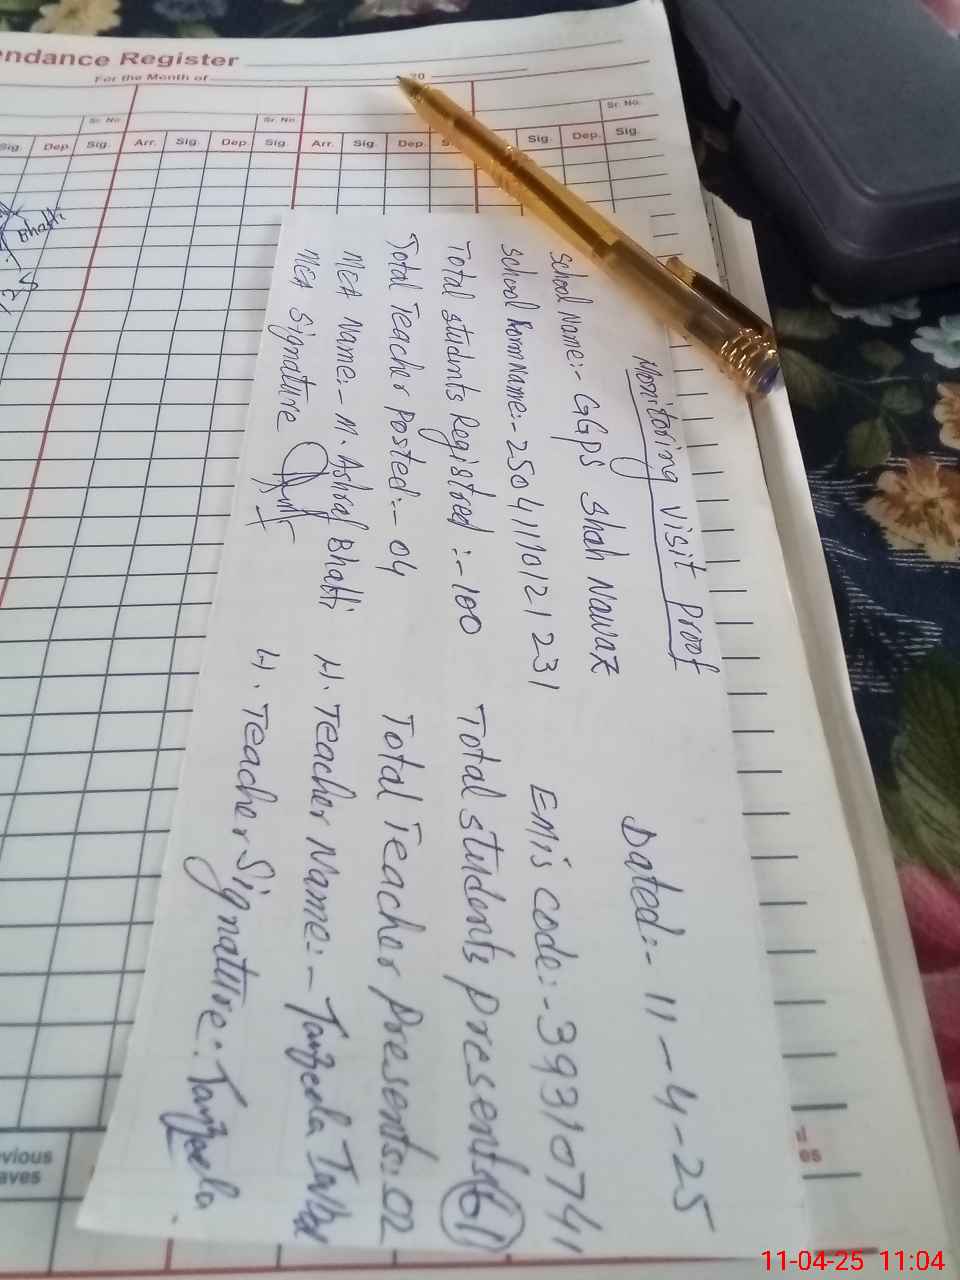 ndance Register
For the Month of 20
Sr. No. Sr. No. Sr. No.
Sig. Dep. Sig. Arr. Sig. Dep. Sig. Arr. Sig. Dep. Sig. Dep. Sig.
Bhatti
Monitoring visit proof Dated:- 11-4-25
School Name:- GGPS Shah Nawaz
School Form Name:- 25041110121231 EMIS code:- 39310741
Total students Registred :- 100 Total students presents 61
Total Teacher Posted:- 04 Total Teacher Presents: 02
MEA Name:- M. Ashraf Bhatti H. Teacher Name:- Tanzeela
MEA Signature H. Teacher Signature: Tanzeela
vious
aves
es
11-04-25 11:04